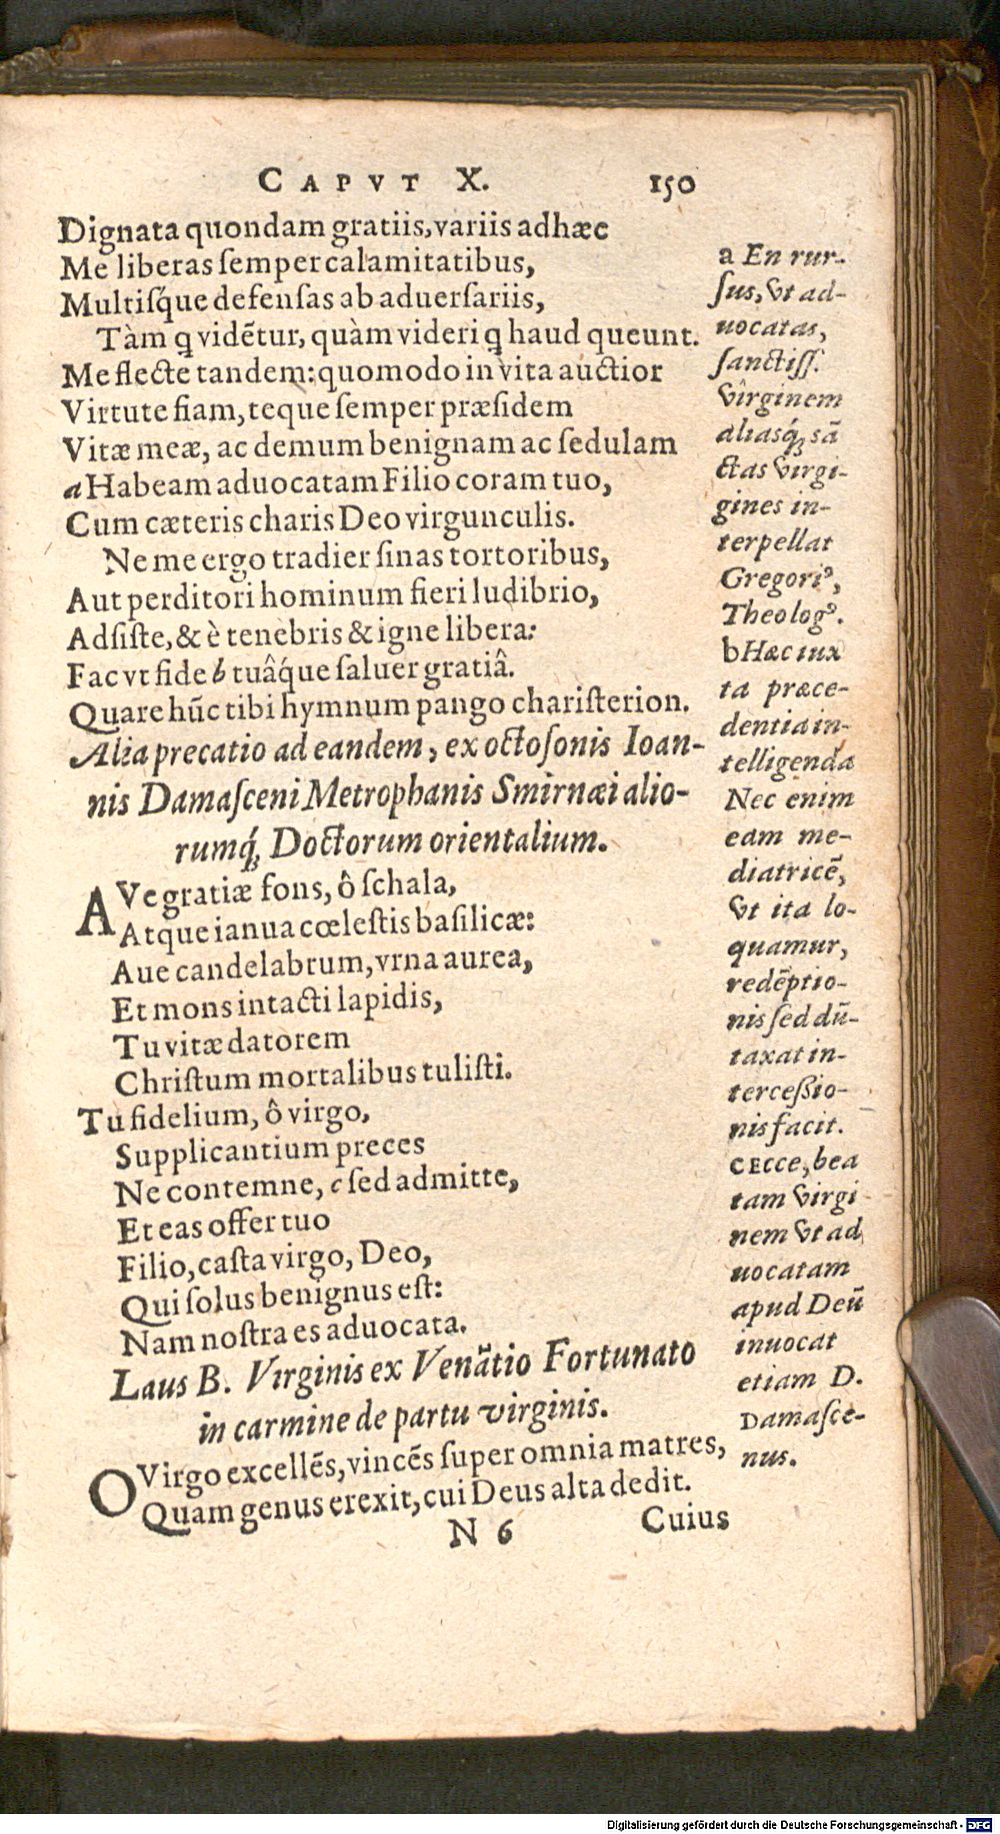 CAPVT X. 150
Dignata quondam gratiis, variis adhæc
Me liberas semper calamitatibus,
Multisq́ue defensas ab aduersariis,
Tàm q̨ vidẽtur, quàm videri q̨ haud queunt.
Me flecte tandem: quomodo in vita auctior
Virtute fiam, teque semper præsidem
Vitæ meæ, ac demum benignam ac sedulam
a Habeam aduocatam Filio coram tuo,
Cum cæteris charis Deo virgunculis.
Ne me ergo tradier sinas tortoribus,
Aut perditori hominum fieri ludibrio,
Adsiste, & è tenebris & igne libera:
Fac vt fide b tuâq́ue saluer gratiâ.
Quare hũc tibi hymnum pango charisterion.
Alia precatio ad eandem, ex octosonis Ioan-
nis Damasceni Metrophanis Smirnæi alio-
rumq́; Doctorum orientalium.
AVe gratiæ fons, ô schala,
Atque ianua cœlestis basilicæ:
Aue candelabrum, vrna aurea,
Et mons intacti lapidis,
Tu vitæ datorem
Christum mortalibus tulisti.
Tu fidelium, ô virgo,
Supplicantium preces
Ne contemne, c sed admitte,
Et eas offer tuo
Filio, casta virgo, Deo,
Qui solus benignus est:
Nam nostra es aduocata.
Laus B. Virginis ex Venãtio Fortunato
in carmine de partu virginis.
O Virgo excellẽs, vincẽs super omnia matres,
Quam genus erexit, cui Deus alta dedit.
N 6 Cuius
a En rur-
sus, vt ad-
uocatas,
sanctiss.
virginem
aliasq́; sã
ctas virgi-
gines in-
terpellat
Gregoriꝰ,
Theologꝰ.
b Hæc iux
ta præce-
dentia in-
telligenda
Nec enim
eam me-
diatricẽ,
vt ita lo-
quamur,
redẽptio-
nis sed dũ-
taxat in-
tercessio-
nis facit.
c Ecce, bea
tam virgi
nem vt ad
uocatam
apud Deũ
inuocat
etiam D.
Damasce-
nus.
Digitalisierung gefördert durch die Deutsche Forschungsgemeinschaft - DFG